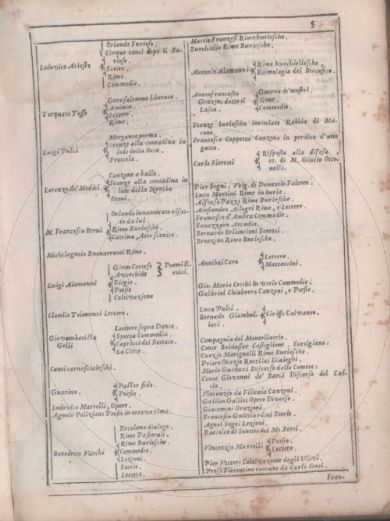 5
Orlando Furioso.
Cinque canti dopo il Furioso.
Lodovico Ariosto
Satire.
Rime.
Commedie.
Gerusalemme liberata.
Aminta.
Torquato Tasso
Lettere.
Rime.
Morgante poema.
Luigi Pulci
lode della Beca.
Frottola.
Canzone a ballo.
Stanze alla contadina in
Lorenzo de' Medici.
lode della Nencia
Orlando Innamorato rifat-
to da lui.
M. Francesco Berni
Rime Burlesche.
Catrina, Atto scenico.
Michelagnolo Buonarruoti Rime.
Giron Cortese
Avarchide
Poemi E-
roici.
Luigi Alamanni
Elegie.
Poesie
Coltivazione
Claudio Tolomei Lettere.
Letture sopra Dante.
Giovambatista
Gelli
Sporta Commedia.
Capricci del Bottaio.
La Circe.
Canti carnascialeschi.
Pastor fido.
Guarino.
Poesie.
Lodovico Martelli, Opere.
Agnolo Poliziano Poesie in ottava rima.
Ercolano dialogo.
Rime Pastorali.
Rime Burlesche.
Benedetto Varchi
Commedie
Lezioni
Storie.
Lettere.
Matteo Franzesi Rime burlesche.
Burchiello Rime Burlesche.
Rime Burchiellesche.
Antonio Alamanni
Etimologia del Beccafico.
Antonfrancesco
Grazini, detto il
Lasca.
Guerra de' mostri.
Rime.
Commedie.
Stanze burlesche intitolate Rabbia di Ma-
cone.
Francesco Coppetta Canzone in perdita d'una
gatta.
Risposta alla difesa,
Carlo Fioretti
ec. di M. Giulio Otto-
nelli.
Pier Segni, Volg. di Demetrio Falereo.
Luca Martini Rime in burla.
Alfonso Pazzi Rime Burlesche.
Alessandro Allegri Rime, e Lettere.
Francesco d'Ambra Commedie.
Sannazzaro Arcadia.
Bernardo Bellincioni Sonetti.
Bronzino Rime Burlesche.
Lettere.
Annibal Caro
Mattaccini.
Gio: Maria Cecchi In versi Commedie;
Gabbriel Chiabrera Canzoni, e Poesie.
Luca Pulci.
Bernardo Giambul-
lari.
Ciriffo Calvaneo.
Compagnia del Mantellaccio.
Conte Baldassar Castiglione. Cortigiano.
Curzio Marignolli Rime Burlesche.
Priore Orazio Rucellai Dialoghi.
Mario Guiducci Discorso delle Comete.
Conte Giovanni de' Bardi Discorso del Cal-
cio.
Vincenzio da Filicaia Canzoni.
Galileo Galilei Opere Diverse.
Francesco Guicciardini Storie.
Agnol Segni Lezioni.
Raccolta di Sonetti del M. Berni.
Poesie.
Vincenzio Martelli
Lettere.
Pier Vettori Coltivazione degli Ulivi.
Prose Fiorentine raccolte da Carlo Dati.
Fran-